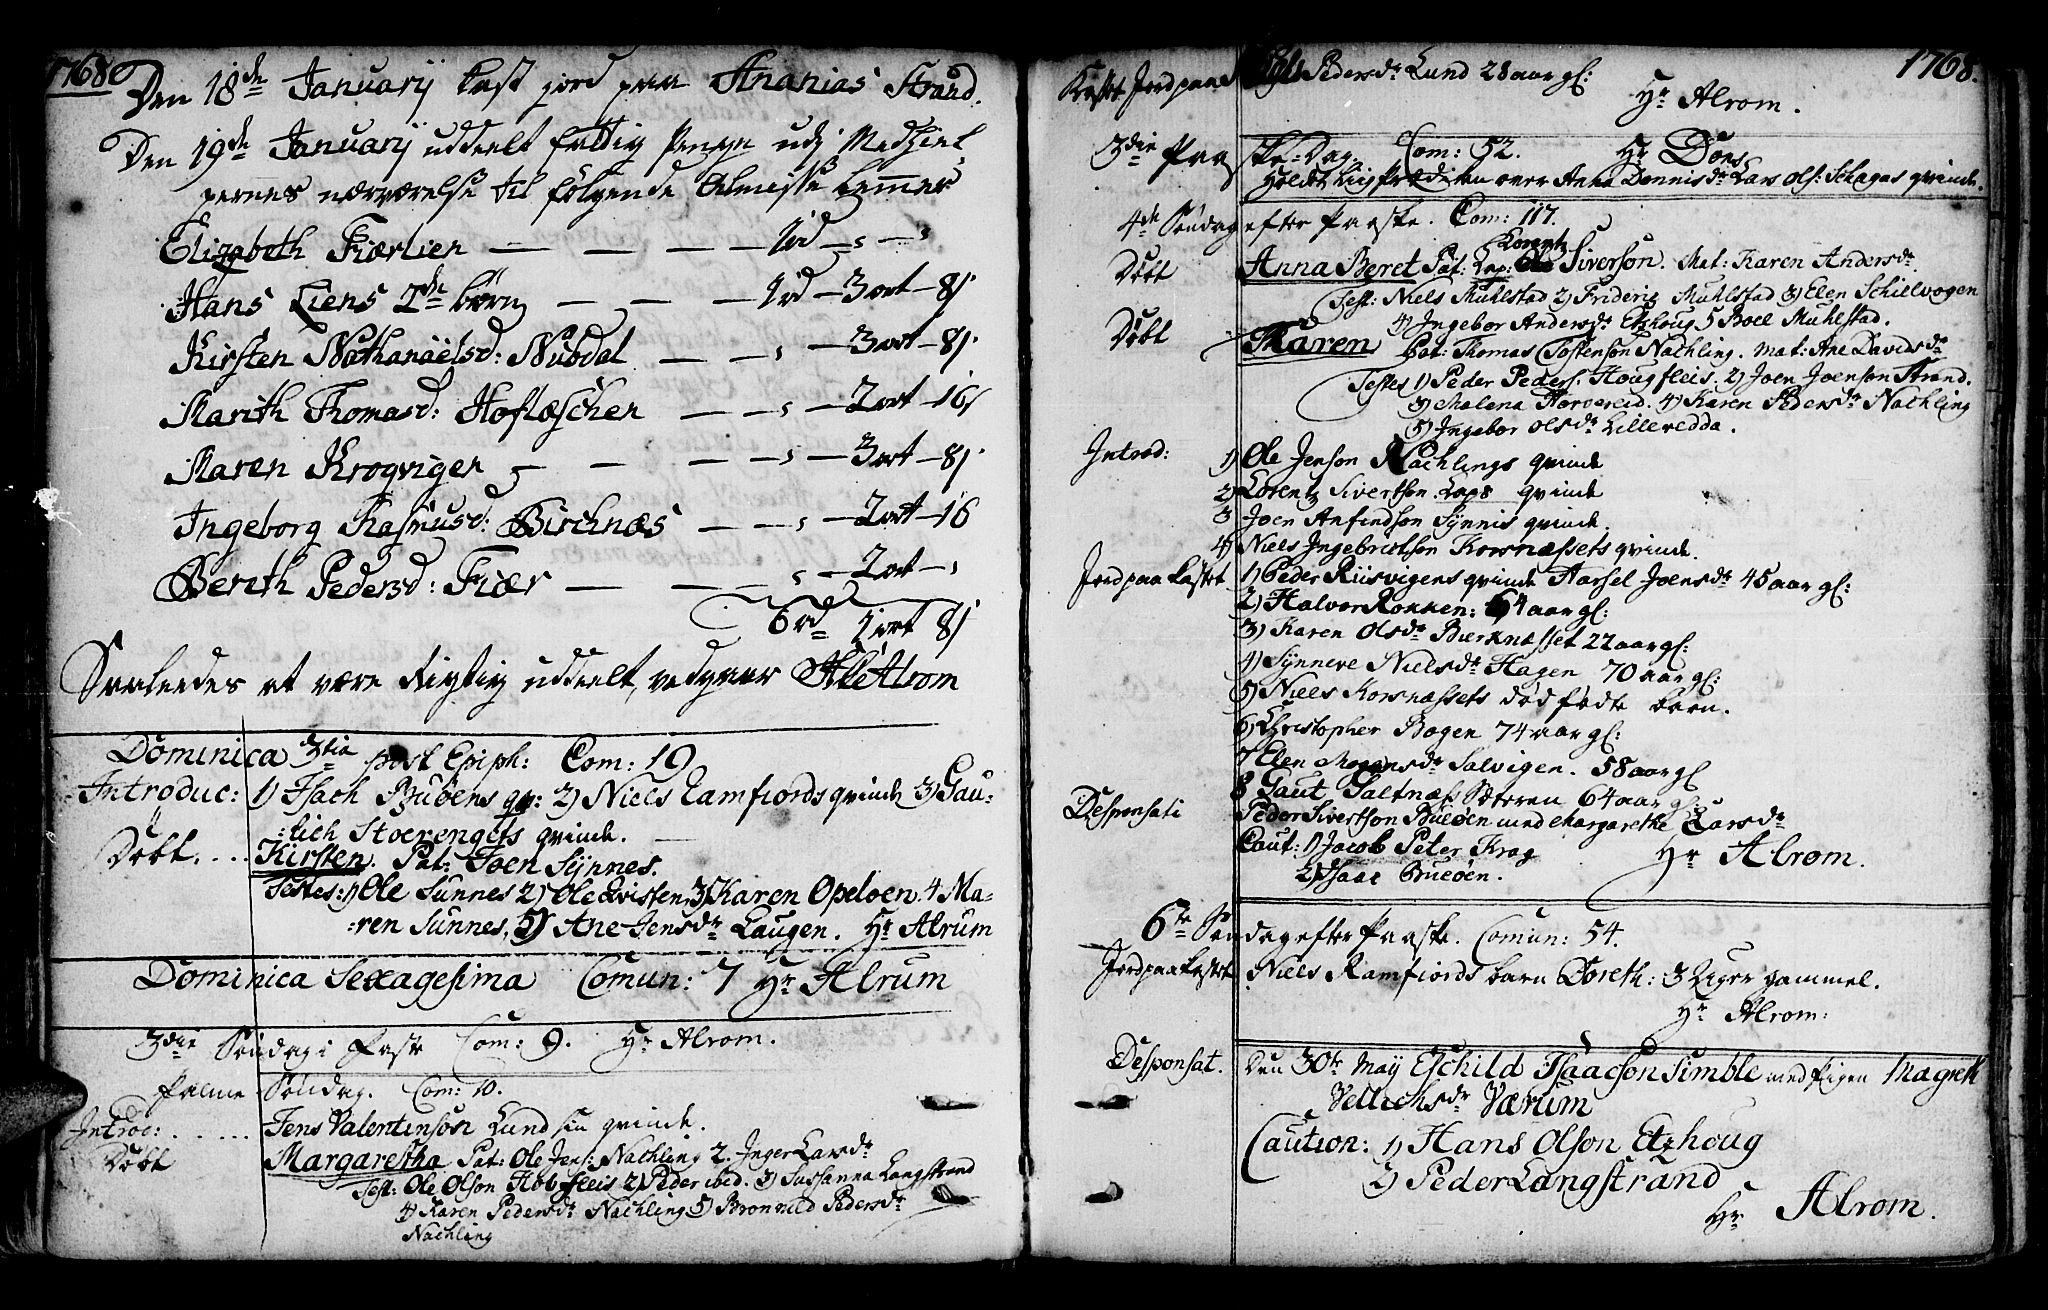 1768
Den 18de Januarij kast jord paa Ananias Strand.
Den 19de Januarij uddeelt fattig Penge udj Medhiel-
pernes nærværelse til følgende Almisse Lemmer
Elizabeth Fiærlien — — — — 1rd — , — ,
Hans Liens 2de börn — — — 1rd — 3ort — 8s
Kirsten Nathanaëlsd: Nubdal — — , — 3ort — 8s
Marith Thomasd: Hoflæscher — — , — 2ort — 16s
Maren Krogvigen — — — — , — 3ort — 8s
Ingeborg Rasmusd: Birchnæs — — , — 2ort — 16
Berith Pedersd: Fiær — — , — 2ort — ,
6rd 1ort 8s
Saaledes at være Rigtig uddeelt, vedgaar Alrom
Dominica 3tia post Epiph: Com: 19
Introduc: 1) Isach Buöens qv: 2) Niels Ramfiords qvinde 3) Gau-
:lich Stoerengets qvinde.
Döbt. .... Kirsten. Pat: Joen Sÿnnes.
Testes: 1) Ole Sunnes 2) Ole Qvisten 3) Karen Opdoen. 4 Ma-
:ren Sunnes, 5) Ane Jensdr Laugen. Hr Alrum
Dominica Sexagesima Comun: 7 Hr Alrum
3die Söndag i Faste Com: 9. Hr Alrom.
Palme Söndag. Com: 10.
Introc: ...... Jens Valentinsön Lund sin qvinde.
Döbt Margaretha Pat: Ole Jens: Nachling 2. Inger Larsdr
Test: Ole Olson Hobfleis 2) Peder ibid. 3) Sussanna Langstrand
4) Karen Pedersdr Nachling 5) Bronnild Pedersdr
Nachling
1768.
Kastet Jord paa Pedersdr Lund 28 aar gl:
Hr Alrom.
3die Paaske-Dag. Com: 52. Hr Döns
Holdet liigprædiken over Anna Dennisdr Lars Ols: Schagas qvinde.
4de Söndag efter Paaske. Com: 117.
Lorentz
Döbt Anna Beret Pat: Lap: Siverson. Mat: Karen Andersdr.
Test: Niels Muhlstad 2) Frideric Muhlstad 3) Elen Schillvogen
4) Ingebor Andersdr Etzhoug 5 Boel Muhlstad.
Döbt Maren Pat: Thomas Tostenson Nachling. Mat: Ane Davidsdr
Testes 1) Peder Peders: Hougfleis. 2) Joen Joenson Strand.
3) Malena Horvereid. 4) Karen Pedersdr Nachling
5) Ingebor Olsdr Lillevedda.
Introd: 1) Ole Jenson Nachlings qvinde
2) Lorentz Sivertson Laps qvinde
3 Joen Anfindson Sÿnnis qvinde.
4) Niels Ingebrictson Korsnæssets qvinde.
Jord paa kastet 1) Peder Riisvigens qvinde Marsel Joensdr 45 aar gl:
2) Halvor Rokken: 64 aar gl:
3) Karen Olsdr Bierknæsset 22 aar gl:
4) Sÿnneve Nielsdr Hagen 70 aar gl:
5) Niels Korsnæssets dödfödte barn.
6) Christopher Bogen 74 aar gl:
7 Elen Mogensdr Salvigen. 58 aar gl
8 Gaut Saltnæs Sæteren 64 aar gl:
Desponsati Peder Sivertson Bueöen med Margarethe Larsdr
Caut: 1) Jacob Peter Krog Hr Alrom.
2) Isaac Bueöen.
6te Söndag efter Paaske. Comun: 54.
Jord paa kastet Niels Ramfiords barn Doreth: 3 Uger gammel.
Hr Alrom:
Desponsat. Den 30te Maÿ Eschild Isaacson Simble med Pigen Magreth
Vellichsdr Værum
Caution: 1) Hans Olson Etzhoug
2) Peder Langstrand
Hr Alrom.